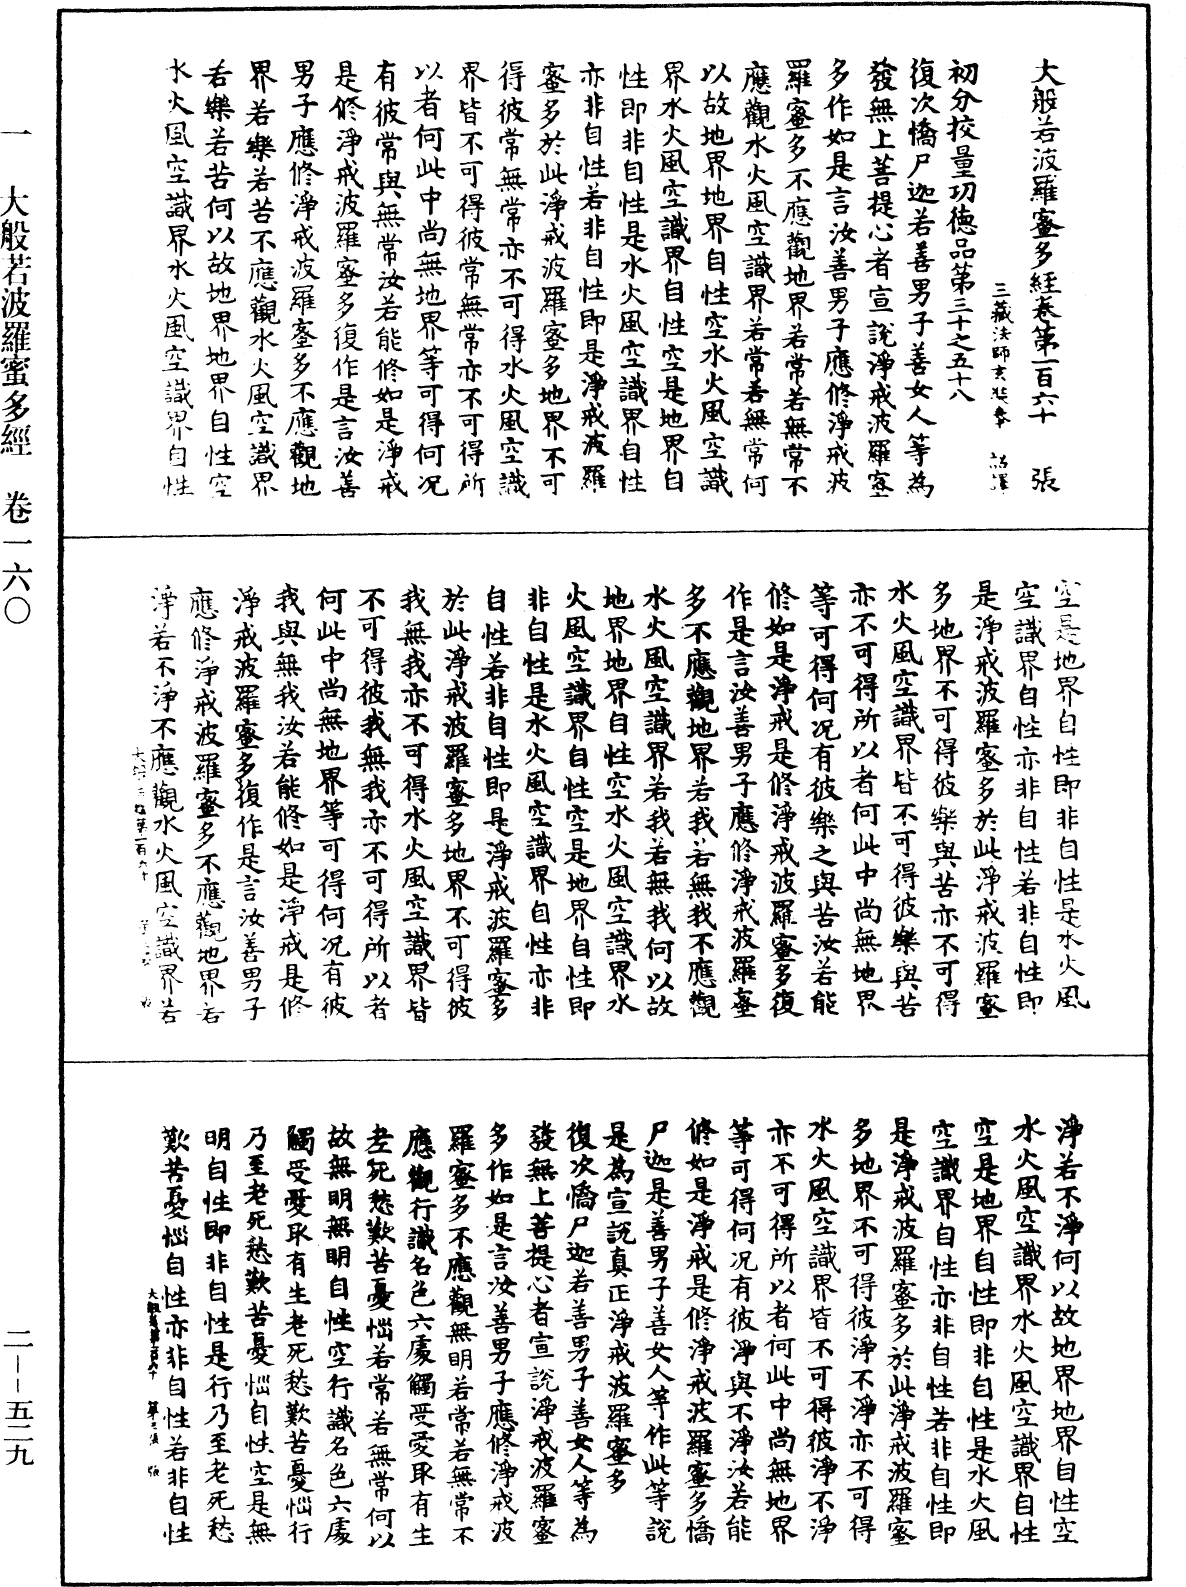 大般若波羅蜜多經卷第一百六十 張
三藏法師玄奘奉 詔譯
初分挍量功德品第三十之五十八
復次憍尸迦若善男子善女人等為
發無上菩提心者宣說淨戒波羅蜜
多作如是言汝善男子應修淨戒波
羅蜜多不應觀地界若常若無常不
應觀水火風空識界若常若無常何
以故地界地界自性空水火風空識
界水火風空識界自性空是地界自
性即非自性是水火風空識界自性
亦非自性若非自性即是淨戒波羅
蜜多於此淨戒波羅蜜多地界不可
得彼常無常亦不可得水火風空識
界皆不可得彼常無常亦不可得所
以者何此中尚無地界等可得何況
有彼常與無常汝若能修如是淨戒
是修淨戒波羅蜜多復作是言汝善
男子應修淨戒波羅蜜多不應觀地
界若樂若苦不應觀水火風空識界
若樂若苦何以故地界地界自性空
水火風空識界水火風空識界自性
空是地界自性即非自性是水火風
空識界自性亦非自性若非自性即
是淨戒波羅蜜多於此淨戒波羅蜜
多地界不可得彼樂與苦亦不可得
水火風空識界皆不可得彼樂與苦
亦不可得所以者何此中尚無地界
等可得何況有彼樂之與苦汝若能
修如是淨戒是修淨戒波羅蜜多復
作是言汝善男子應修淨戒波羅蜜
多不應觀地界若我若無我不應觀
水火風空識界若我若無我何以故
地界地界自性空水火風空識界水
火風空識界自性空是地界自性即
非自性是水火風空識界自性亦非
自性若非自性即是淨戒波羅蜜多
於此淨戒波羅蜜多地界不可得彼
我無我亦不可得水火風空識界皆
不可得彼我無我亦不可得所以者
何此中尚無地界等可得何況有彼
我與無我汝若能修如是淨戒是修
淨戒波羅蜜多復作是言汝善男子
應修淨戒波羅蜜多不應觀地界若
淨若不淨不應觀水火風空識界若
淨若不淨何以故地界地界自性空
水火風空識界水火風空識界自性
空是地界自性即非自性是水火風
空識界自性亦非自性若非自性即
是淨戒波羅蜜多於此淨戒波羅蜜
多地界不可得彼淨不淨亦不可得
水火風空識界皆不可得彼淨不淨
亦不可得所以者何此中尚無地界
等可得何況有彼淨與不淨汝若能
修如是淨戒是修淨戒波羅蜜多憍
尸迦是善男子善女人等作此等說
是為宣說真正淨戒波羅蜜多
復次憍尸迦若善男子善女人等為
發無上菩提心者宣說淨戒波羅蜜
多作如是言汝善男子應修淨戒波
羅蜜多不應觀無明若常若無常不
應觀行識名色六處觸受愛取有生
老死愁歎苦憂惱若常若無常何以
故無明無明自性空行識名色六處
觸受愛取有生老死愁歎苦憂惱行
乃至老死愁歎苦憂惱自性空是無
明自性即非自性是行乃至老死愁
歎苦憂惱自性亦非自性若非自性
一 大般若波羅蜜多經 卷一六〇
二－－五二九